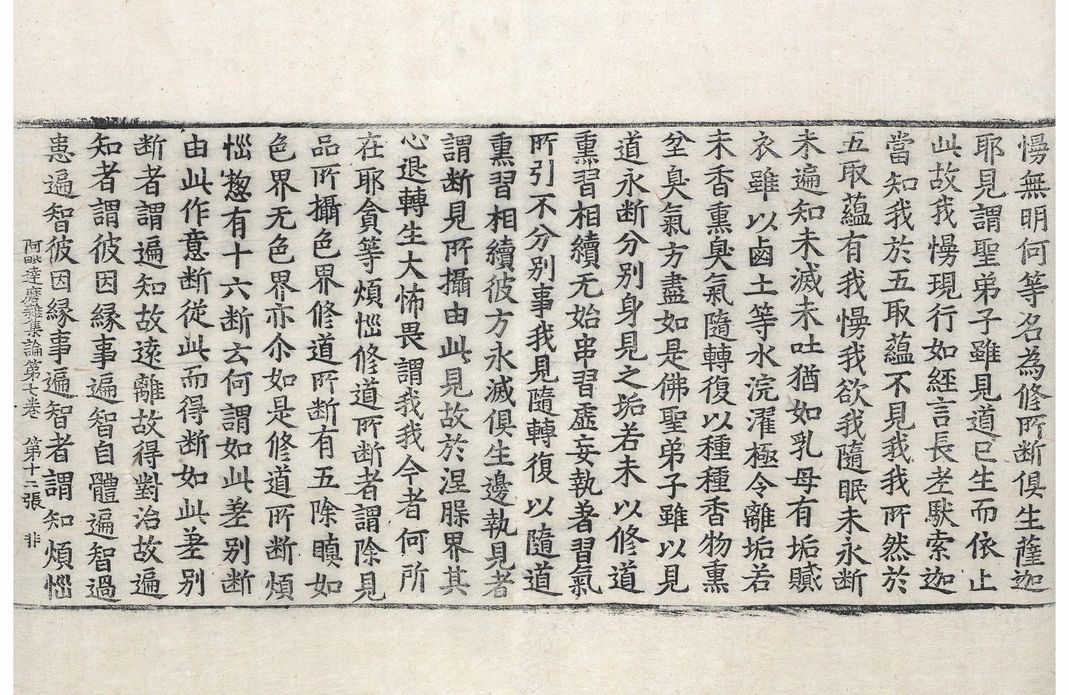 慢無明何等名為修所斷俱生薩迦
耶見謂聖弟子雖見道已生而依止
此故我慢現行如經言長老馱索迦
當知我於五取蘊不見我我所然於
五取蘊有我慢我欲我隨眠未永斷
未遍知未滅未吐猶如乳母有垢膩
衣雖以鹵土等水浣濯極令離垢若
未香熏臭氣隨轉復以種種香物熏
坌臭氣方盡如是佛聖弟子雖以見
道永斷分別身見之垢若未以修道
熏習相續无始串習虛妄執著習氣
所引不分別事我見隨轉復以隨道
熏習相續彼方永滅俱生邊執見者
謂斷見所攝由此見故於涅槃界其
心退轉生大怖畏謂我我今者何所
在耶貪等煩惱修道所斷者謂除見
品所攝色界修道所斷有五除瞋如
色界无色界亦尒如是修道所斷煩
惱惣有十六斷云何謂如此差别斷
由此作意斷從此而得斷如此差别
断者謂遍知故遠離故得對治故遍
知者謂彼因縁事遍智自體遍智過
患遍智彼因縁事遍智者謂知煩惱
阿毗達磨雜集論第七卷 第十二張 非